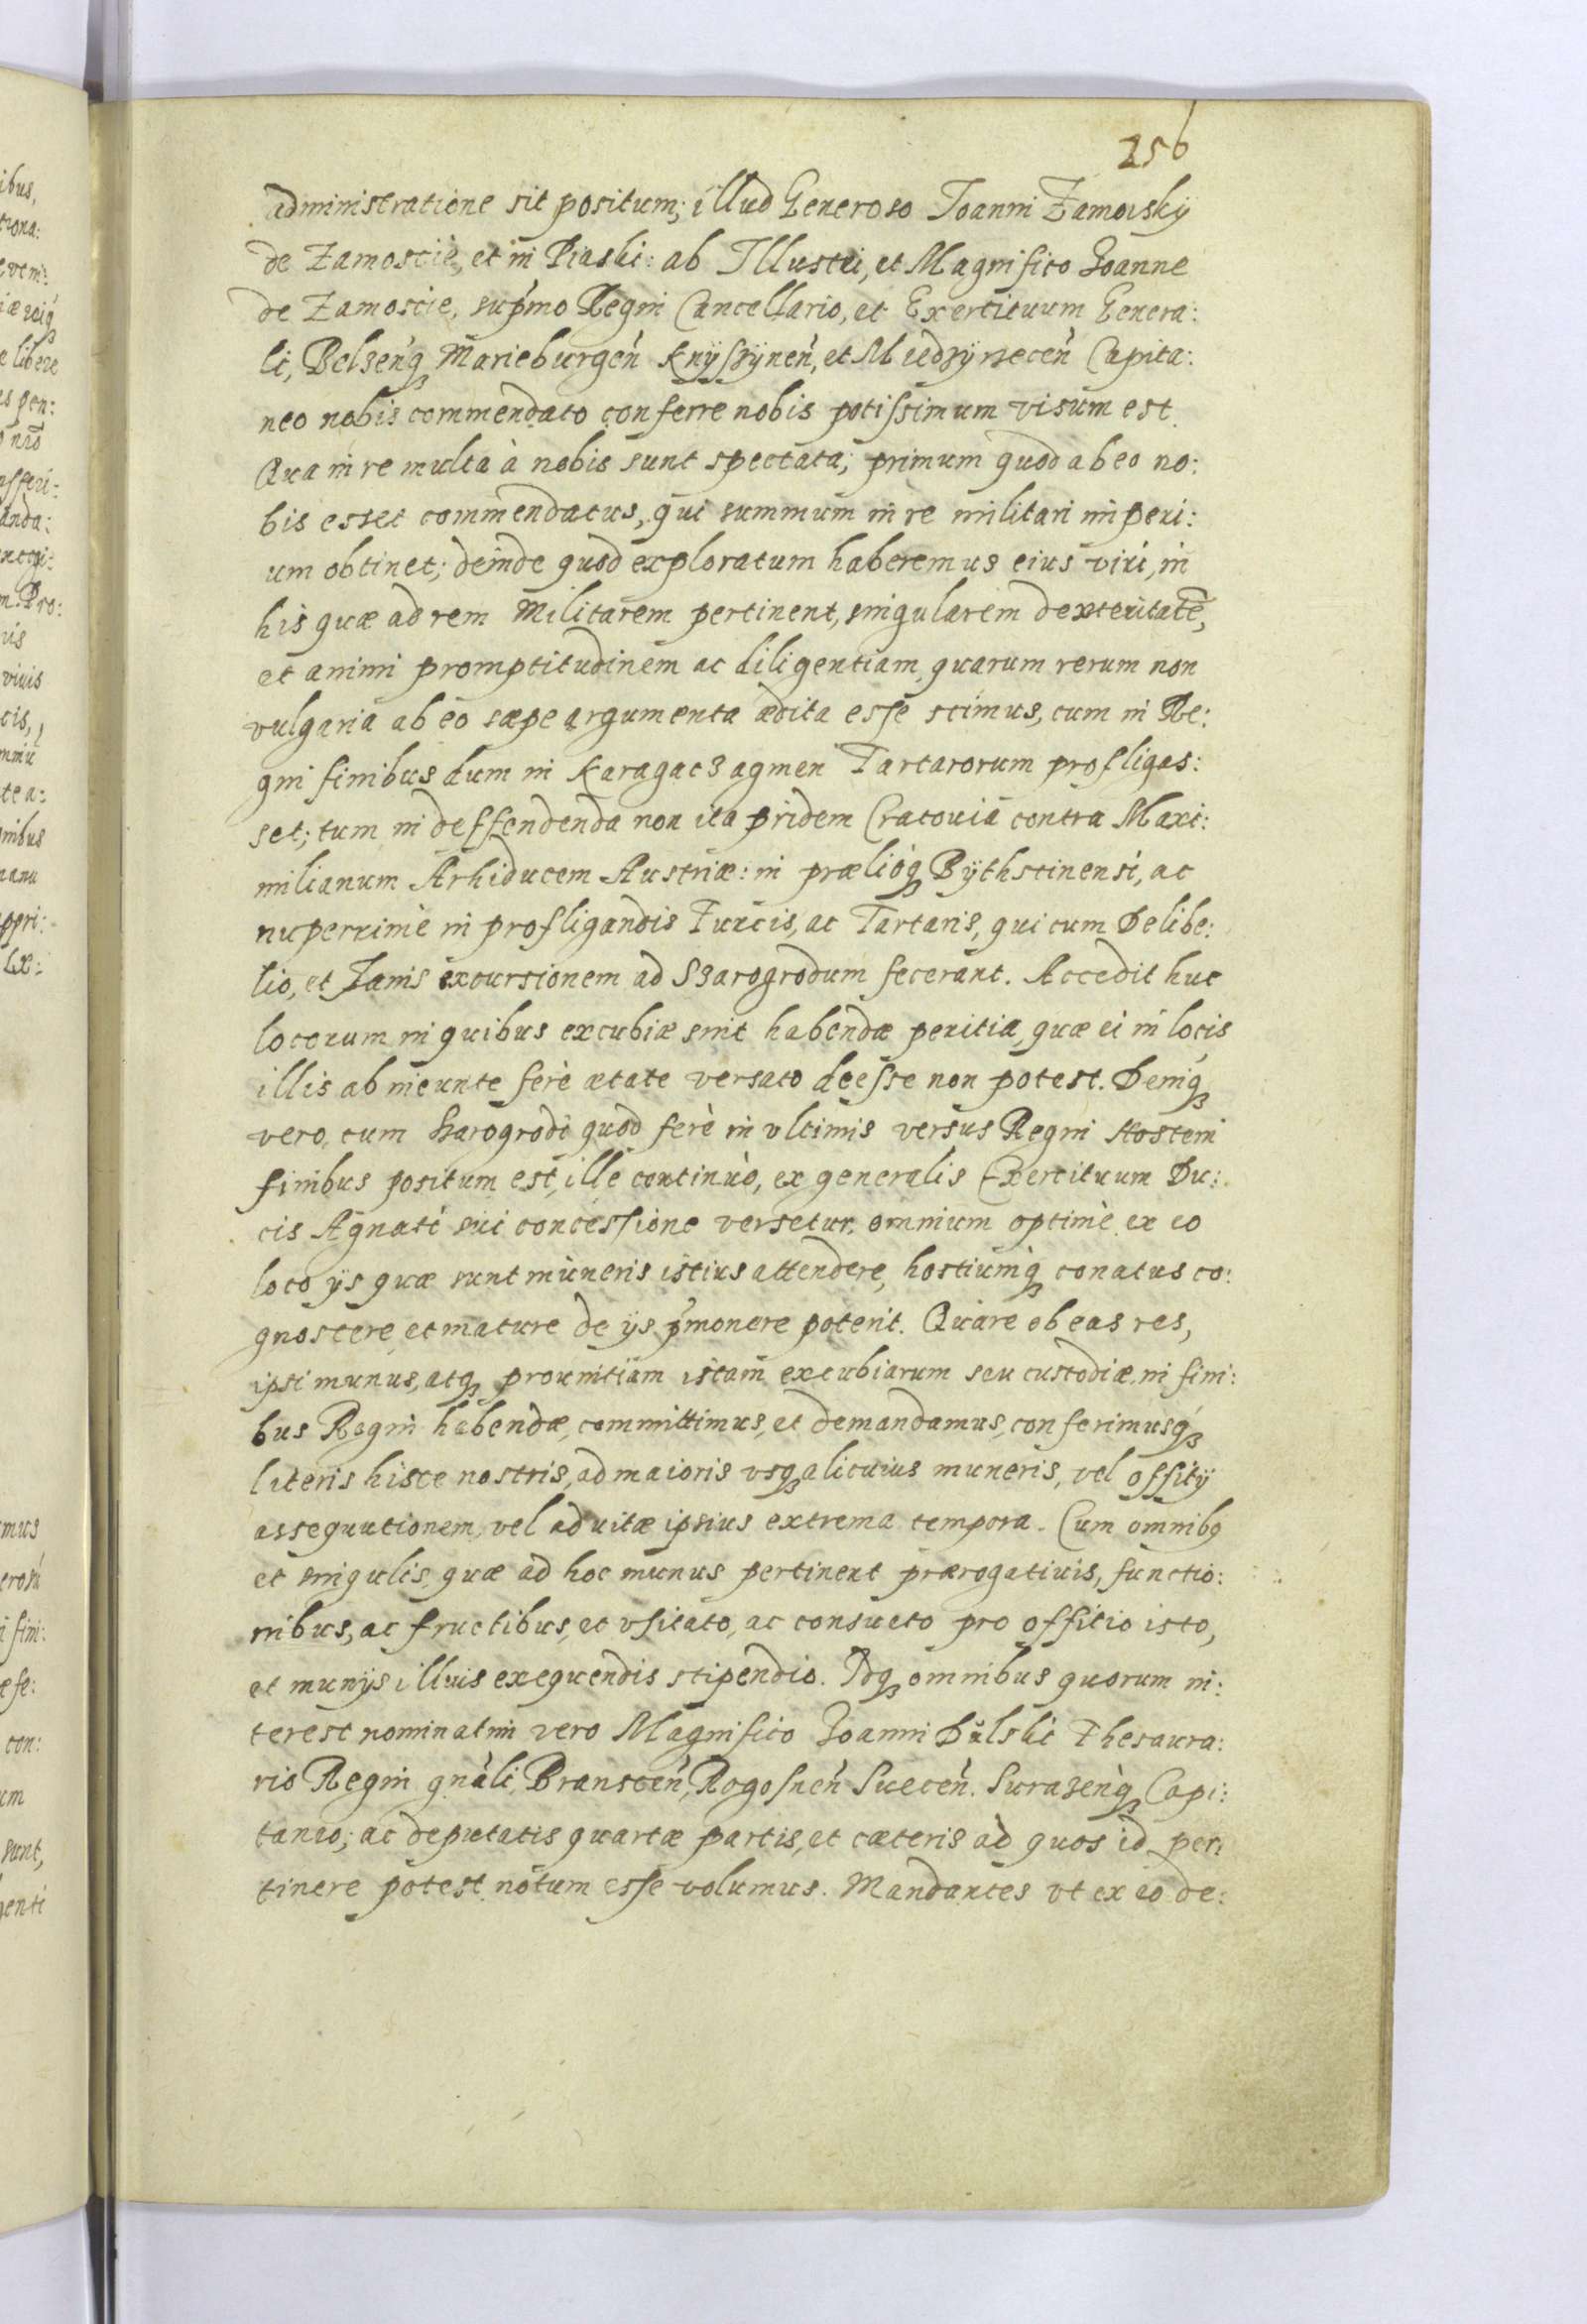 256
administratione sit positum; illud Generoso Joanni Zamoisky
de Zamoscie, et in Piaski: ab Illustri, et Magnifico Joanne
de Zamoscie, sup̃mo Regni Cancellario, et Exercituum Genera:
li, Belzen̄q₃ Marieburgen̄ Knÿsẏnen̄, et Miedzÿrzecen̄ Capita:
neo nobis commendato conferre nobis potissimum visum est.
Qua in re multa à nobis sunt spectata; primum quod ab eo no:
bis esset commendatus, qui summum in re militari imperi:
um obtinet; deinde quod exploratum haberemus eius viri, in
his quæ ad rem Militarem pertinent, singularem dexteritatē,
et animi promptitudinem ac diligentiam, quarum rerum non
vulgaria ab eo sæpe argumenta ædita esse scimus, cum in Re:
gni finibus dum in Karagacz agmen Tartarorum profligas:
set; tum in deffendenda non ita pridem Cratouia contra Maxi:
milianum Arhiducem Austriæ: in prælioq₃ Bÿthstinensi, ac
nuperrimè in profligandis Turcis, ac Tartaris, qui cum Delibe:
lio, et Zanis excursionem ad Szarogrodum fecerant. Accedit huc
locorum in quibus excubiæ sint habendæ peritia, quæ ei in locis
illis ab ineunte ferè ætate versato deesse non potest. Deniq₃
vero, cum Sarogrodi quod ferè in vltimis versus Regni Hostem
finibus positum est, ille continuò, ex generalis Exercituum Du:
cis Agnati sui concessione versetur, omnium optimè ex eo
loco ÿs quæ sunt muneris istius attendere, hostiumq₃ conatus co:
gnoscere, et mature de ÿs p̃monere poterit. Quare ob eas res,
ipsi munus, atq₃ prouintiam istam excubiarum seu custodiæ, in fini:
bus Regni habendæ, committimus, et demandamus, conferimusq₃
literis hisce nostris, ad maioris vsq₃ alicuius muneris, vel offitÿ
assequutionem, vel ad uitæ ipsius extrema tempora. Cum omnibꝯ
et singulis, quæ ad hoc munus pertinent prærogatiuis, functio:
nibus, ac fructibus, et vsitato, ac consueto pro offitio isto,
et munÿs illius exequendis stipendio. Idq₃ omnibus quorum in:
terest nominatim vero Magnifico Joanni Dulski Thesaura:
rio Regni gn̄ali, Branscen̄, Rogosnen̄ Suecen̄. Surazen̄q₃ Capi:
taneo; ac deputatis quartæ partis, et cæteris ad quos id per:
tinere potest notum esse volumus. Mandantes vt ex eo de: